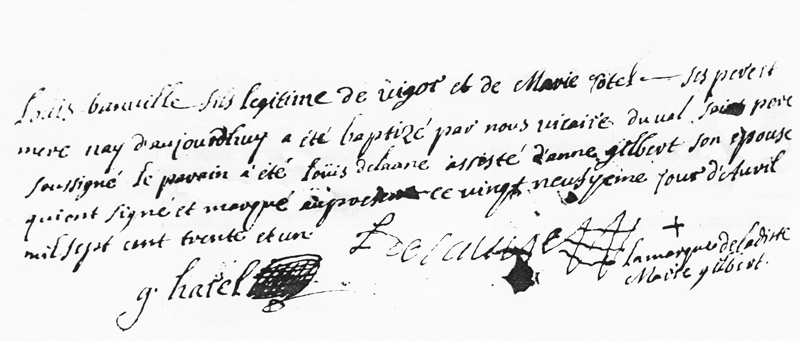 Louis banville fils legitime de vigor et de Marie Jotel ses pere et
mere nay d'aujourdhuy a été baptizé par nous vicaire du val pere
soussigné le parain a été Loüis delaune assisté d'anne gilbert son epouse
qui ont signé et marqué ce vingt neufyeme jour d'Avril
mil sept cent trente et un
L Delaune
la marque de laditte
Marie gilbert
g. harel